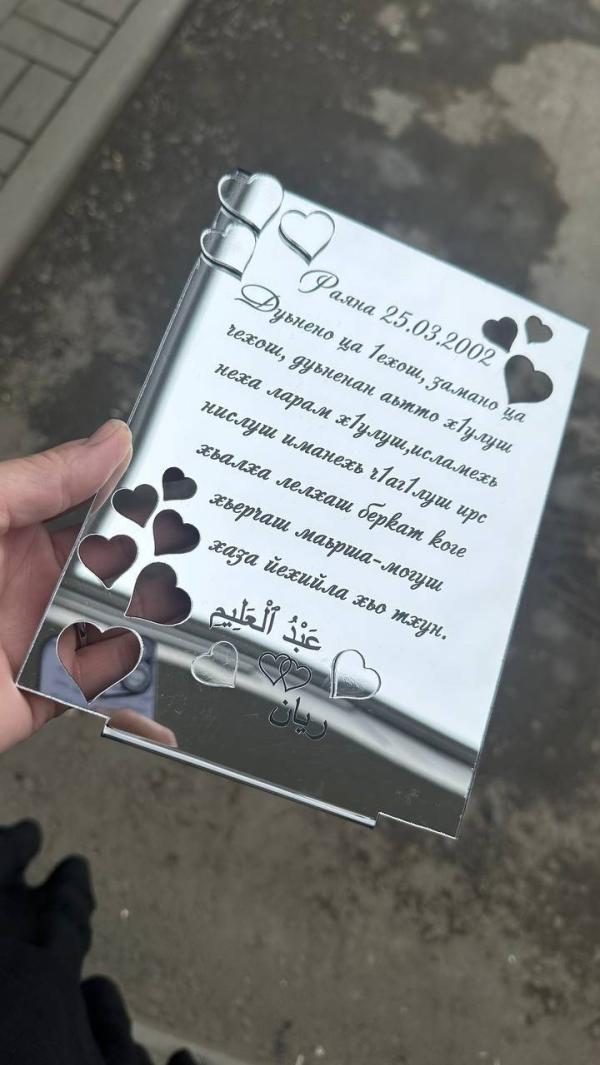 Раяна 25.03.2002
Дуьнено ца 1ехош, замано ца
чехош, дуьненан аьтто х1улуш
неха ларам х1улуш,исламехь
нислуш иманехь ч1аг1луш ирс
хьалха лелхаш беркат коге
хьерчаш маьрша-могуш
хаза йехийла хьо тхун.
عَبْدُ ٱلْعَلِيم
ريان